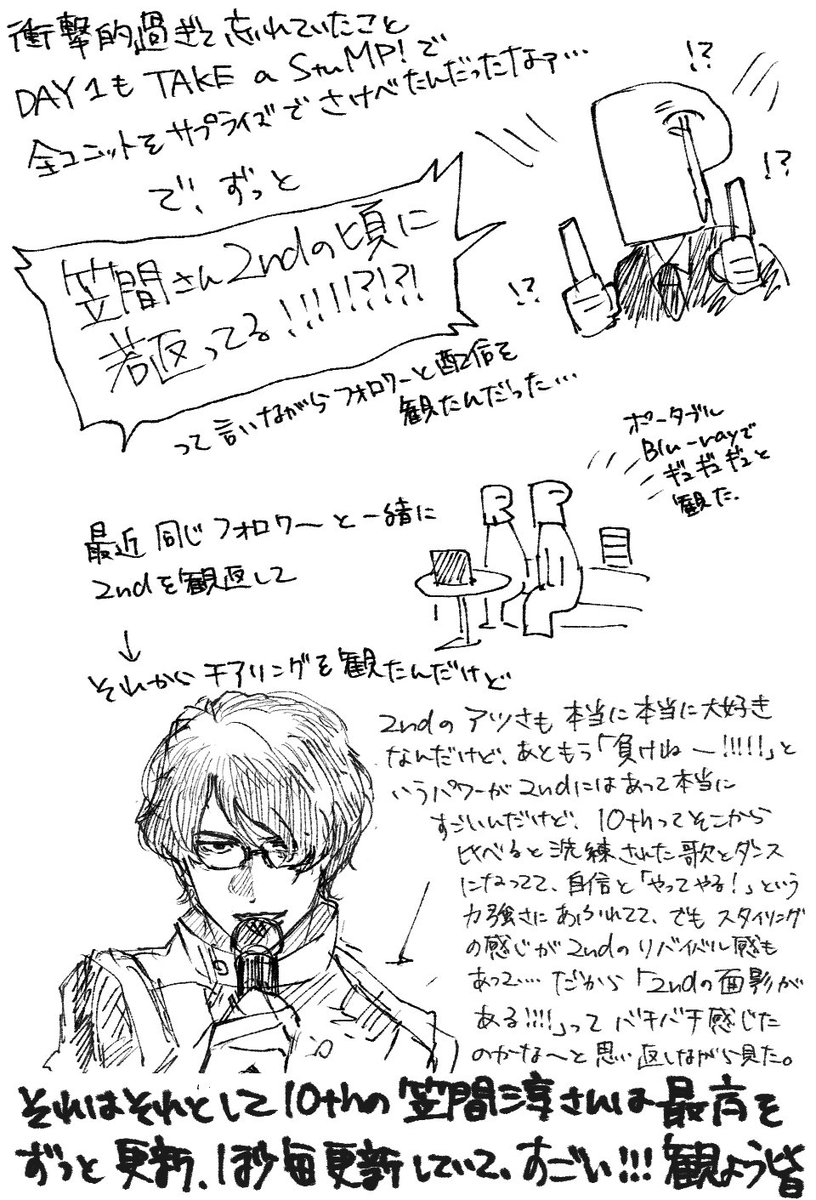 衝撃的過ぎて忘れていたこと
DAY1も TAKE a StuMP!で
全ユニットをサプライズでさけべたんだったなァ…
で、ずっと
笠間さん2ndの頃に
若返ってる!!!!!?!?!
って言いながらフォロワーと配信を
観たんだった…
!?
!?
!?
P
ポータブル
Blu-rayで
ギュギュギュと
観た.
最近同じフォロワーと一緒に
2ndを観返して
P
↓
それからチアリングを観たんだけど
2ndのアツさも本当に本当に大好き
なんだけど、あともう「負けねー!!!!!」と
いうパワーが2ndにはあって本当に
すごいんだけど、10thってそこから
比べると洗練された歌とダンス
になってて、自信と「やってやる!」という
力強さにあふれてて、でもスタイリング
の感じが2ndのリバイバル感も
あって…だから「2ndの面影が
ある!!!!」ってバチバチ感じた
のかな〜と思い返しながら見た。
それはそれとして10thの笠間淳さんは最高を
ずっと更新、1秒毎更新していて、すごい!!!観よう皆